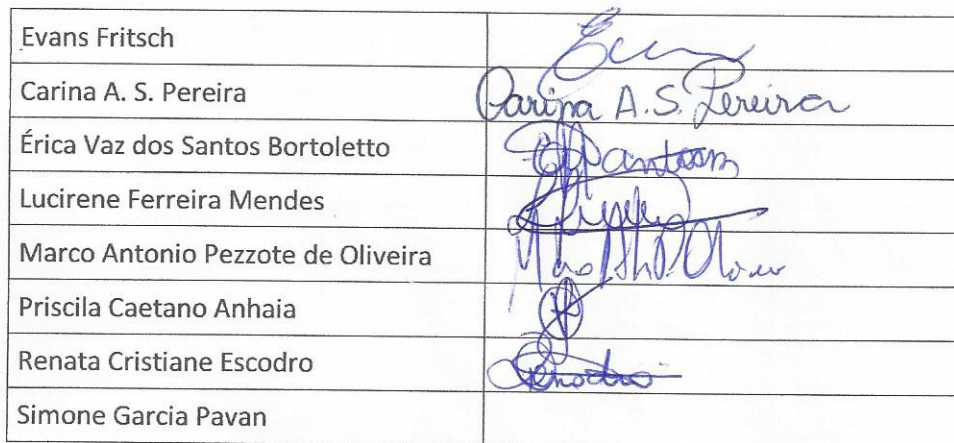 Evans Fritsch
Carina A. S. Pereira Carina A.S. Pereira
Érica Vaz dos Santos Bortoletto
Lucirene Ferreira Mendes
Marco Antonio Pezzote de Oliveira
Priscila Caetano Anhaia
Renata Cristiane Escodro
Simone Garcia Pavan